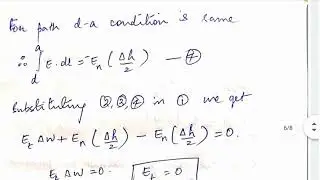 For path d-a condition is same
∴ ∫_d^a E.dl = -E_n (Δh/2) — ④
Substituting ②,③,④ in ① we get
E_t ΔW + E_n (Δh/2) - E_n (Δh/2) = 0.
E_t ΔW = 0. E_t = 0